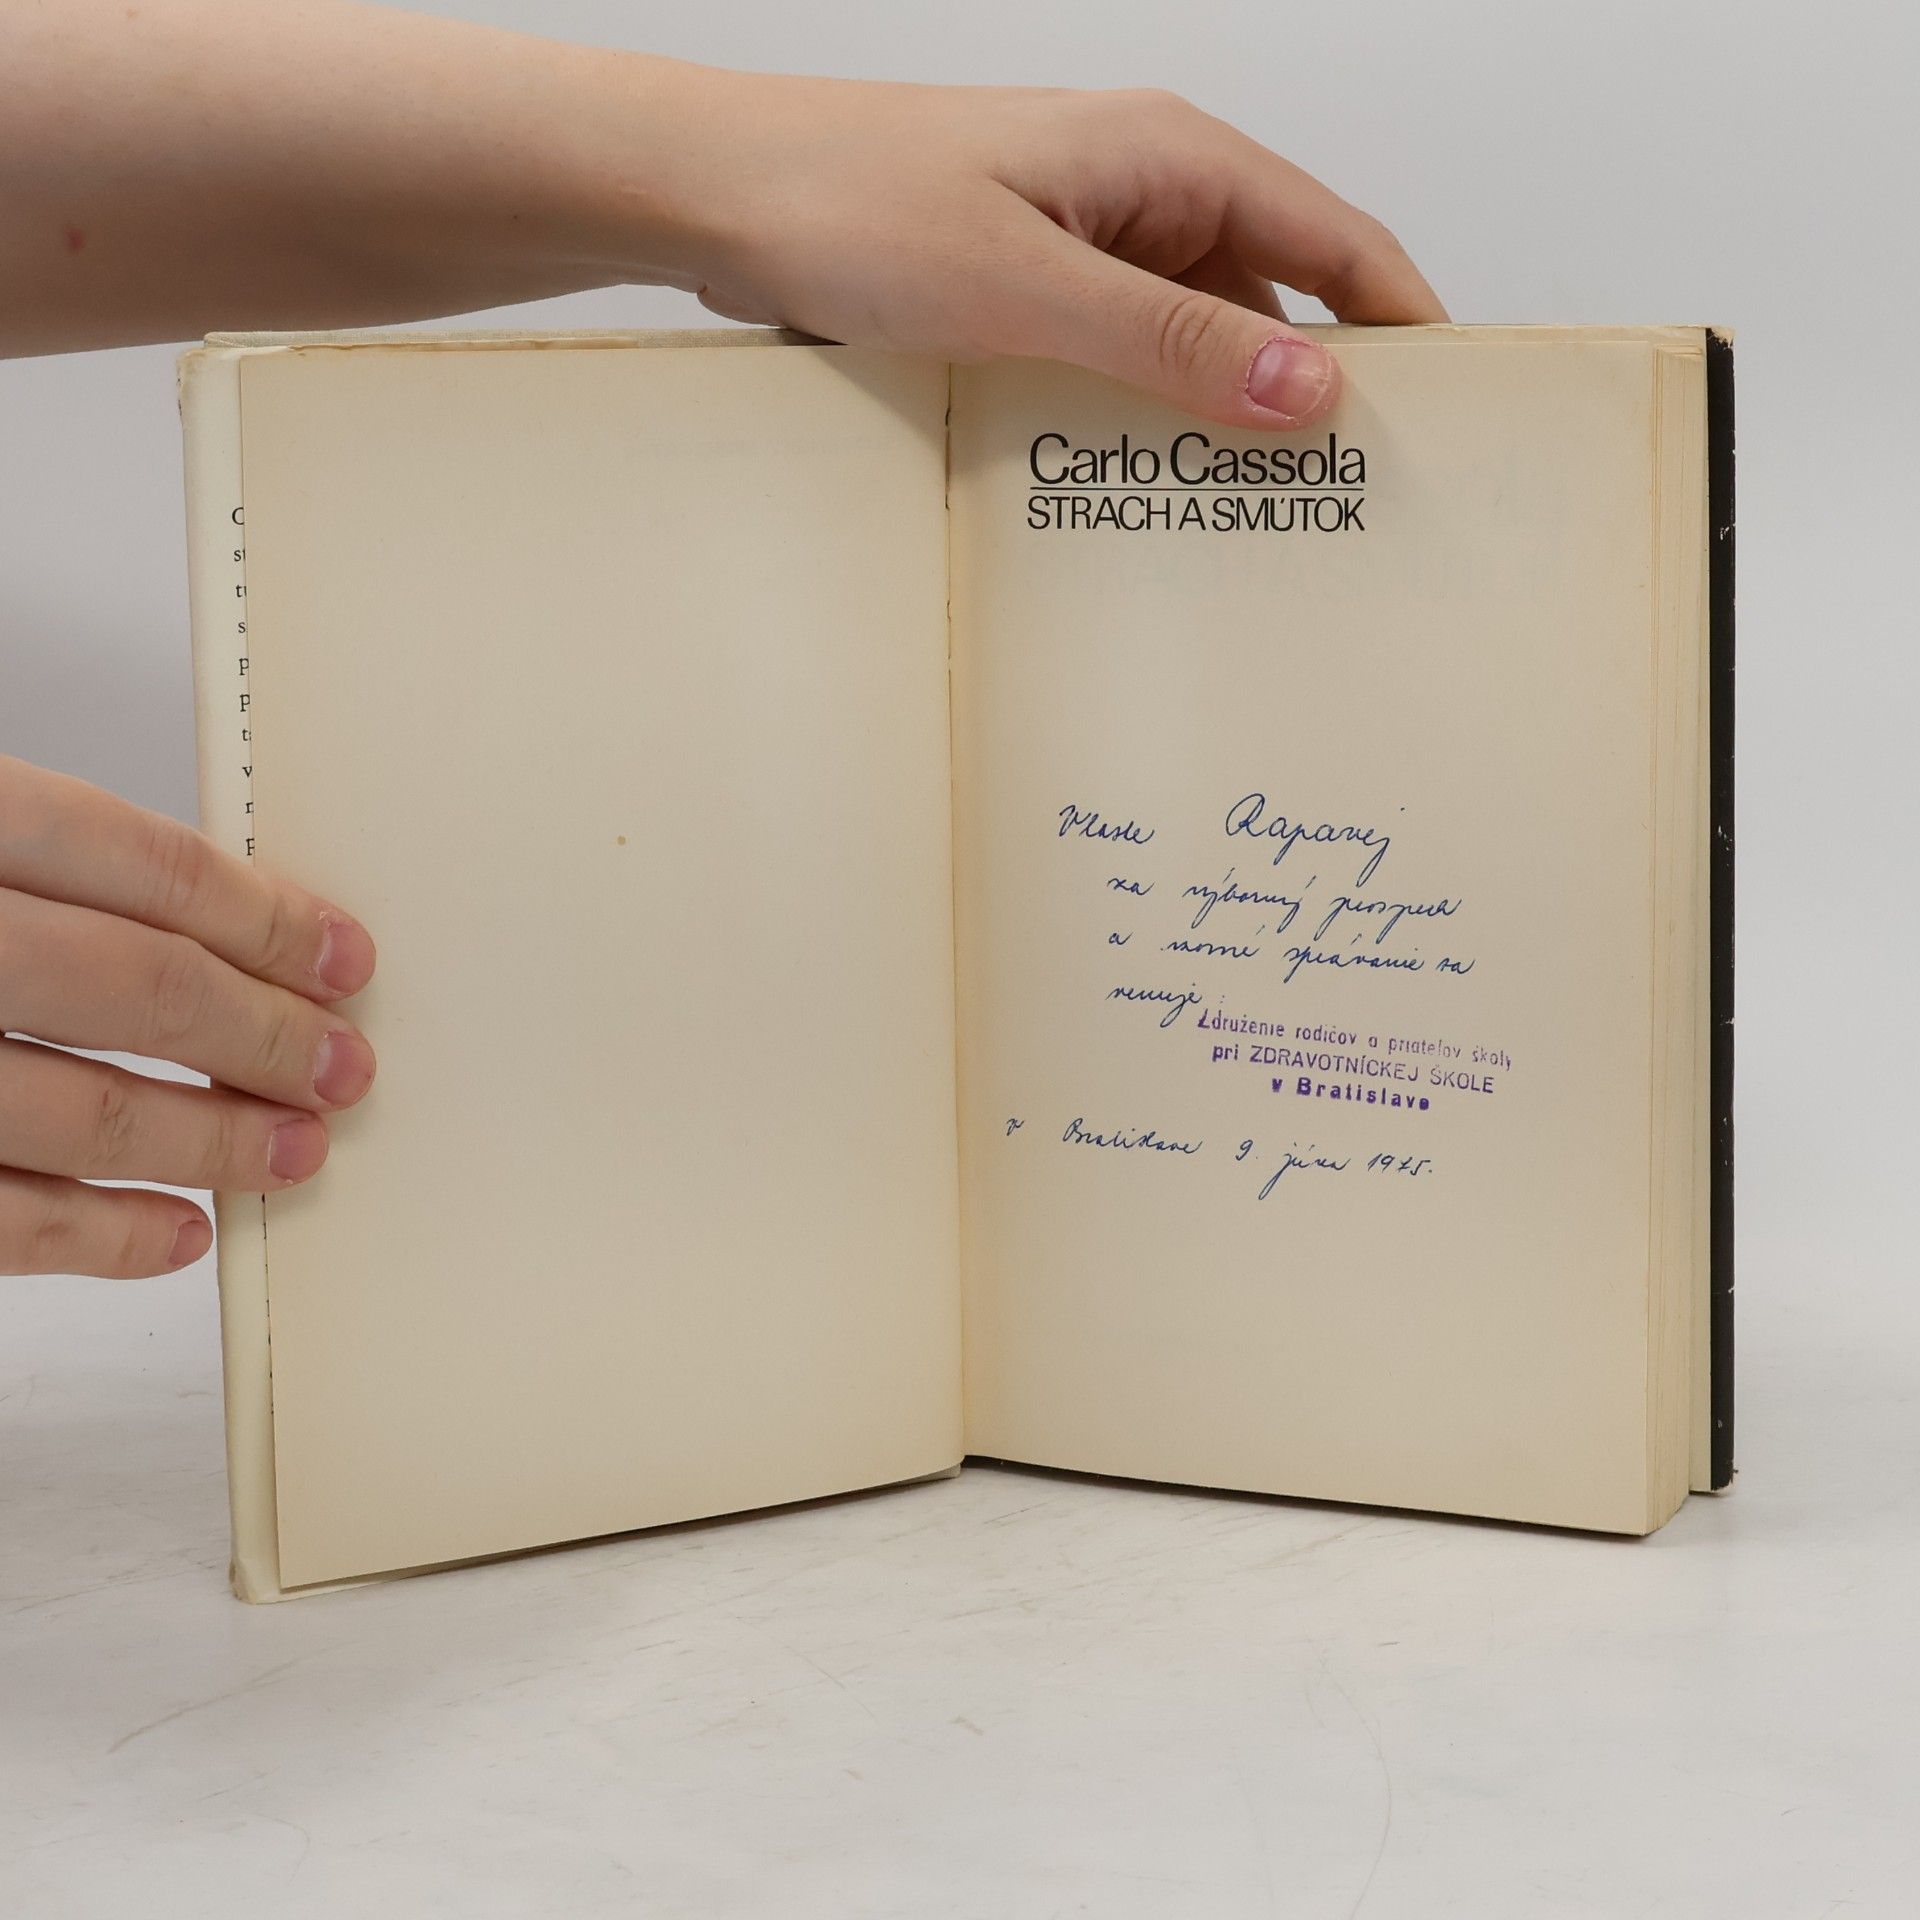 Carlo Cassola
STRACH A SMÚTOK
Vlaste Rapavej
za výborný prospech
a vzorné správanie sa
venuje:
Združenie rodičov a priateľov školy
pri ZDRAVOTNÍCKEJ ŠKOLE
v Bratislave
V Bratislave 9. júna 1975.